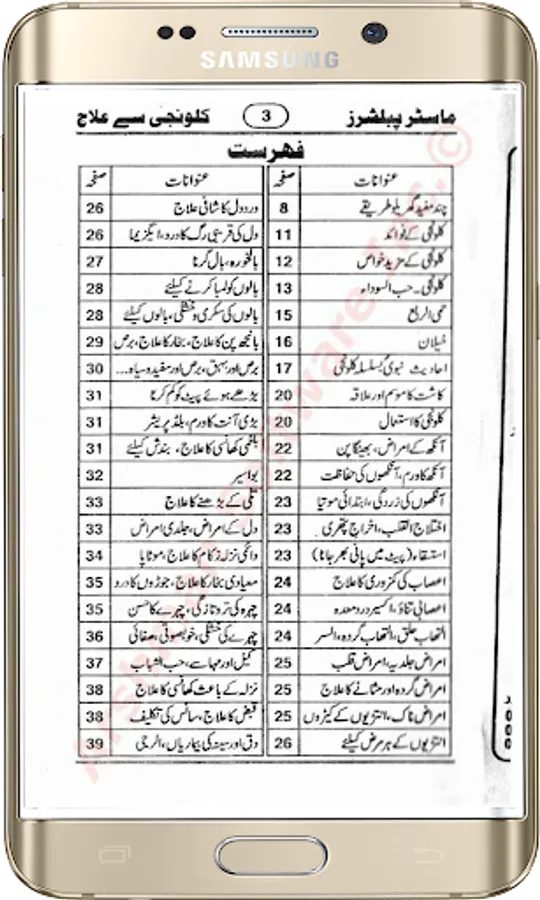 SAMSUNG
ماسٹر پبلشرز 3 کلونجی سے علاج
فہرست
عنوانات صفحہ
چند مفید گھریلو طریقے 8
کلونجی کے فوائد 11
کلونجی کے مزید خواص 12
کلونجی۔ حب السوداء 13
حمی الربع 15
خیلان 16
احادیث نبوی بسلسلہ کلونجی 17
کاشت کا موسم اور علاقہ 20
کلونجی کا استعمال 20
آنکھ کے امراض، بھینگا پن 22
آنکھ کا ورم، آنکھوں کی حفاظت 22
آنکھوں کی زردگی، ابتدائی موتیا 23
اختلاج القلب، اخراج پتھری 23
استسقاء (پیٹ میں پانی بھر جانا) 23
اعصاب کی کمزوری کا علاج 24
اعصابی تناؤ، اکسیر درد معدہ 24
التہاب حلق، التہاب گردہ، السر 24
امراض جلدیہ، امراض قلب 25
امراض گردہ اور مثانے کا علاج 25
امراض ناک، انتڑیوں کے کیڑوں 25
انتڑیوں کے ہر مرض کیلئے 26
عنوانات صفحہ
درد دل کا شافی علاج 26
دل کی قریبی رگ کا درد، ایگزیما 26
بالخورہ، بال گرنا 27
بالوں کو لمبا کرنے کیلئے 28
بالوں کی سکری و خشکی، بالوں کیلئے 28
بانجھ پن کا علاج، بخار کا علاج، برص 29
برص اور بہق، برص اور سفید و سیاہ... 30
بڑھے ہوئے پیٹ کو کم کرنا 31
بڑی آنت کا ورم، بلڈ پریشر 31
بلغمی کھانسی کا علاج، بندش کیلئے 31
بواسیر 32
تلی کے بڑھنے کا علاج 33
دل کے امراض، جلدی امراض 33
دائمی نزلہ زکام کا علاج، موٹاپا 34
معیادی بخار کا علاج، جوڑوں کا درد 35
چہرہ کی تروتازگی، چہرے کا حسن 35
چہرے کی خشکی، خوبصورتی، صفائی 36
کیل اور مہاسے، حب الشباب 37
نزلہ کے باعث کھانسی کا علاج 38
قبض کا علاج، سانس کی تکلیف 38
دق اور سینہ کی بیماریاں، الرجی 39